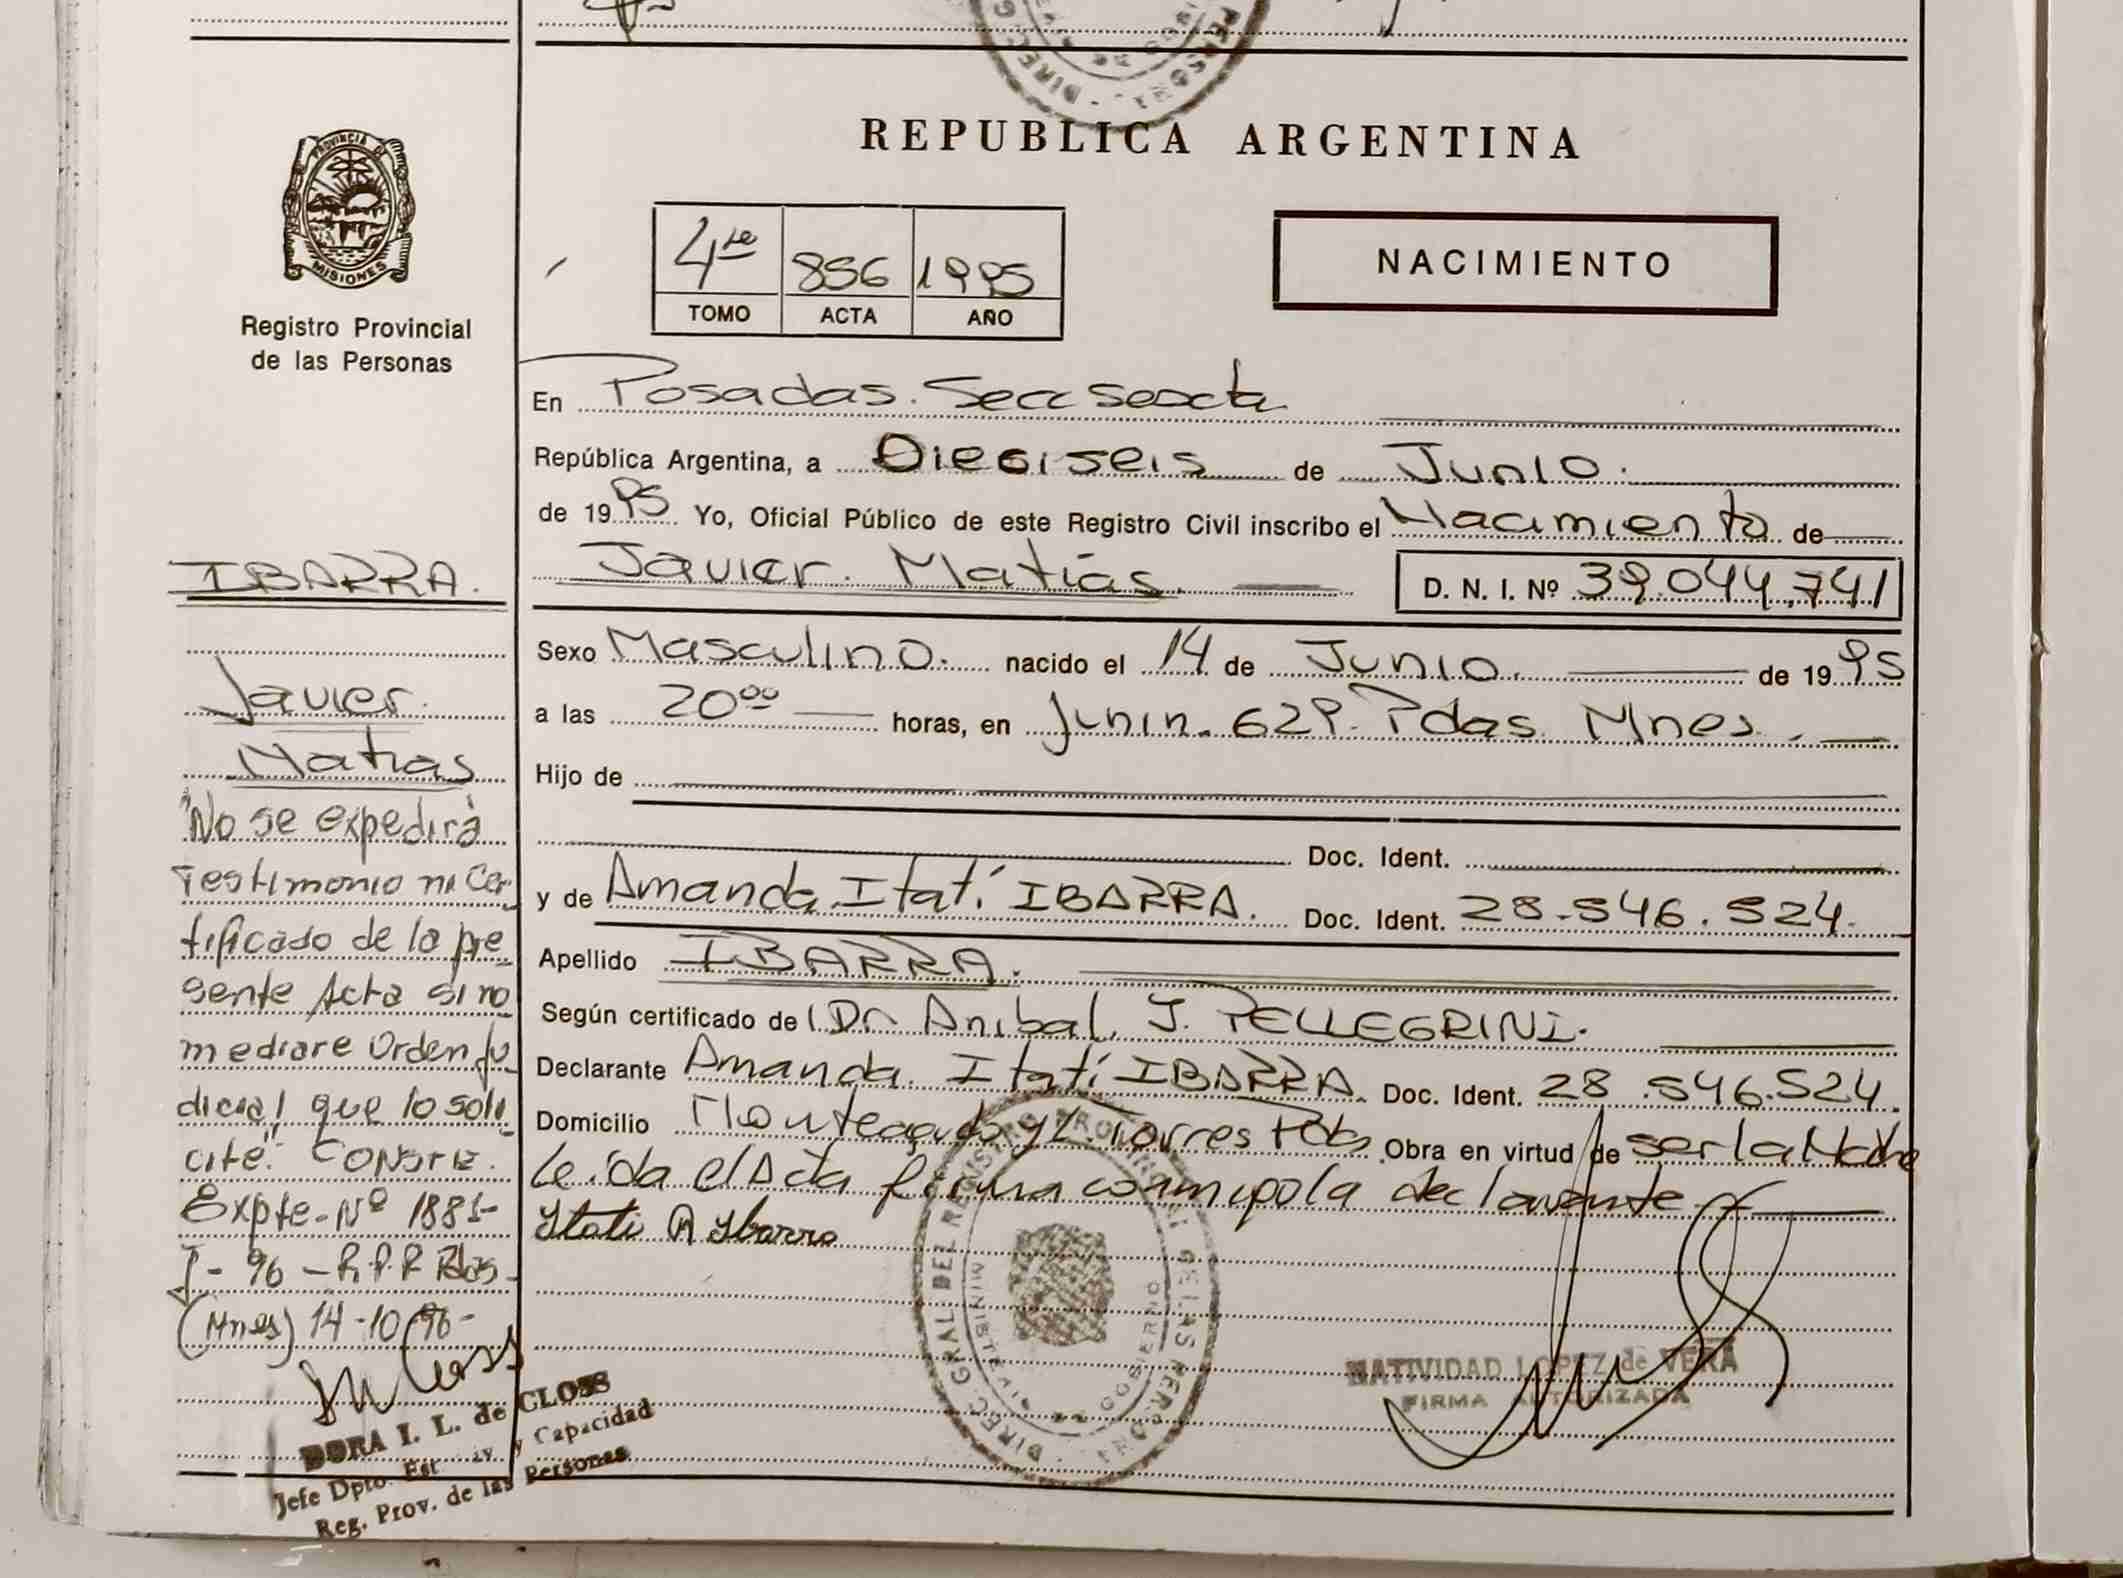 PROVINCIA DE
MISIONES
Registro Provincial
de las Personas
REPUBLICA ARGENTINA
4to 856 1995
TOMO ACTA AÑO
NACIMIENTO
En Posadas. Secc Sexta
República Argentina, a Dieciseis de Junio.
de 1995 Yo, Oficial Público de este Registro Civil inscribo el Nacimiento de
Javier Matías. D. N. I. Nº 39.044.741
Sexo Masculino. nacido el 14 de Junio. de 1995
a las 20⁰⁰ horas, en Junin. 629. Pdas. Mnes.
Hijo de
Doc. Ident.
y de Amanda Itatí IBARRA. Doc. Ident. 28.546.524.
Apellido IBARRA.
Según certificado de Dr Anibal. J. PELLEGRINI.
Declarante Amanda. Itatí IBARRA. Doc. Ident. 28.546.524.
Domicilio Monteagudo y L. Torres Obra en virtud de ser la Madre
Leida el Acta firma la declarante
Itati A Ibarra
IBARRA.
Javier
Matias
"No se expedirá
Testimonio ni Cer
tificado de la pre
sente Acta si no
mediare Orden Ju
dicial que lo soli
cité." CONSTE.
Expte-Nº 1881-
I-96-R.P.P. Pdas-
(Mnes) 14-10-96-
DORA I. L. de CLOSS
Jefe Dpto. Est. Civ. y Capacidad
Reg. Prov. de las Personas
DIREC. GRAL DEL REGISTRO PROV. DE LAS PERSONAS
MINISTERIO DE GOBIERNO
NATIVIDAD LOPEZ de VERA
FIRMA AUTORIZADA